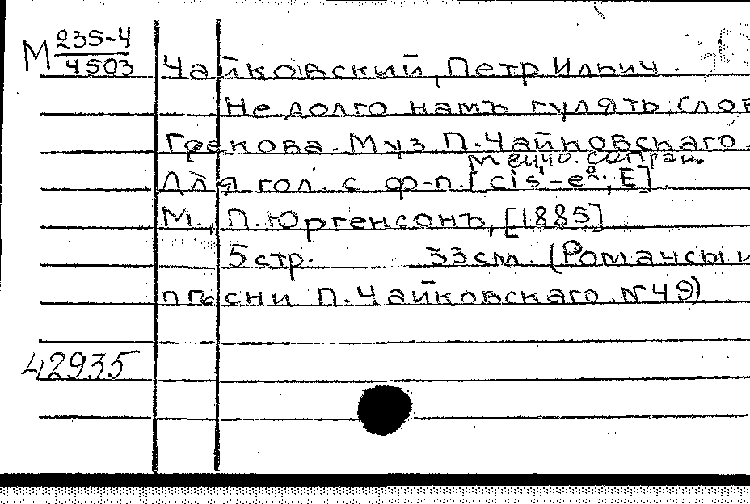 М 235-4
4503
Чайковский, Петр Ильич.
Не долго намъ гулять. Слов
Грекова. Муз. П. Чайковскаго.
Для гол. с ф-п. [cis¹-e²; E]
М., П. Юргенсонъ, [1885]
5 стр. 33 см. (Романсы и
пѣсни П. Чайковскаго. № 49)
42935